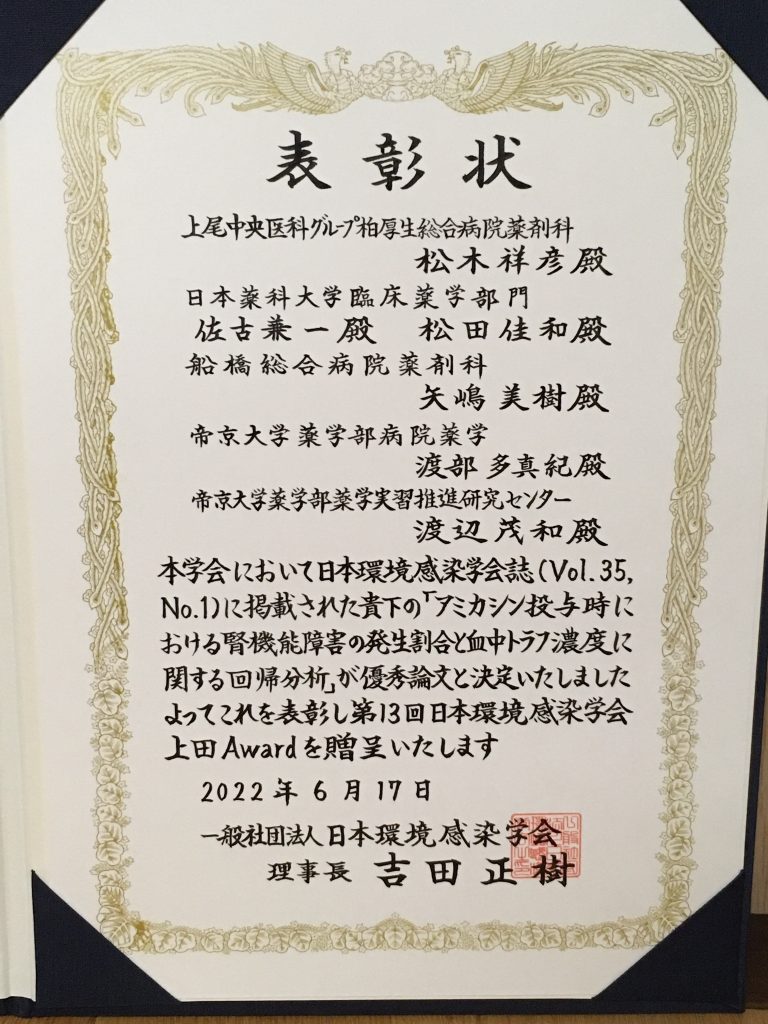 表彰状
上尾中央医科グループ柏厚生総合病院薬剤科
松木祥彦殿
日本薬科大学臨床薬学部門
佐古兼一殿 松田佳和殿
船橋総合病院薬剤科
矢嶋美樹殿
帝京大学薬学部病院薬学
渡部多真紀殿
帝京大学薬学部薬学実習推進研究センター
渡辺茂和殿
本学会において日本環境感染学会誌(Vol.35,
No.1)に掲載された貴下の「アミカシン投与時に
おける腎機能障害の発生割合と血中トラフ濃度に
関する回帰分析」が優秀論文と決定いたしました
よってこれを表彰し第13回日本環境感染学会
上田Awardを贈呈いたします
2022年6月17日
一般社団法人日本環境感染学会
理事長 吉田正樹